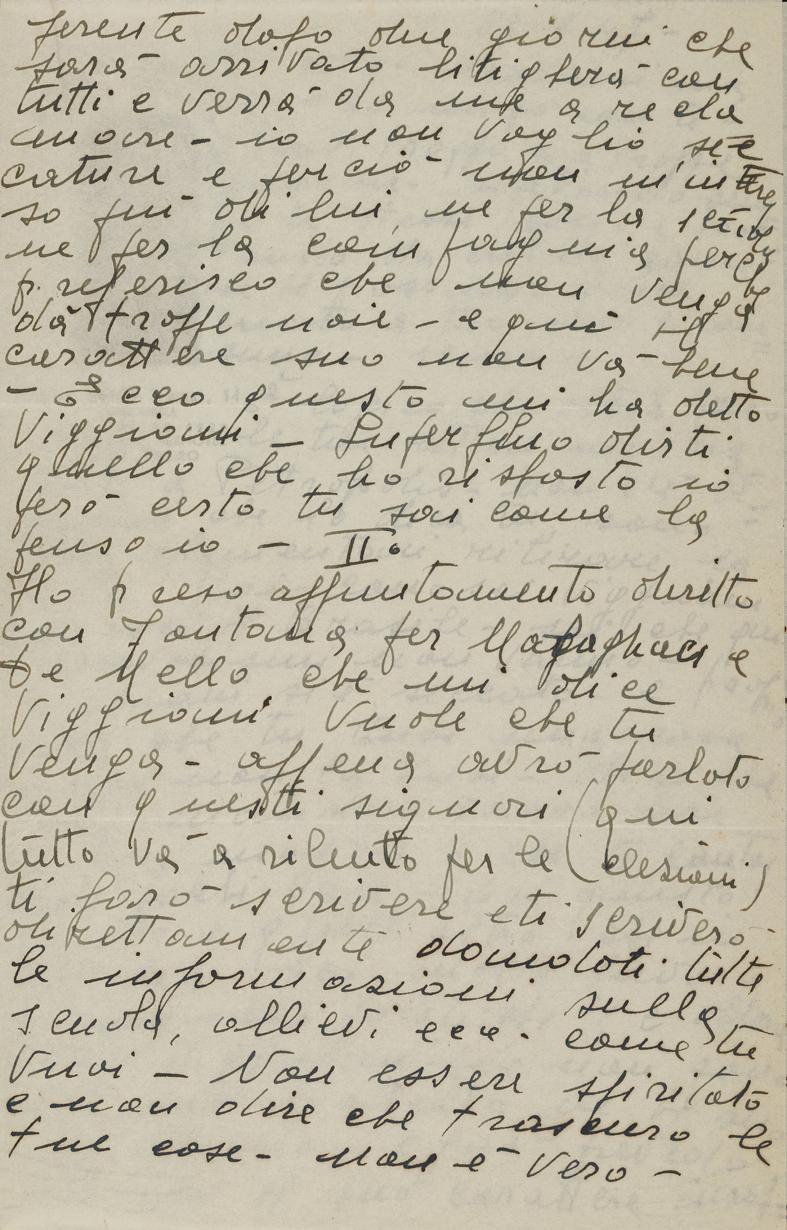 ferente dopo due giorni che
sarà arrivato litigherà con
tutti e verrà da me a recla
mare - io non voglio sec
cature e perciò non m'interes
so più di lui ne per la
ne per la compagnia perchè
preferisco che non venga
dà troppe noie - e qui il
carattere suo non và bene
- Ecco questo mi ha detto
Viggiani - Superfluo dirti
quello che ho risposto io
però certo tu sai come la
penso io - II°
Ho preso appuntamento diretto
con Fontana per e
De Mello che mi dice
Viggiani vuole che tu
venga - appena avrò parlato
con questi signori (qui
tutto và a rilento per le elezioni)
ti farò scrivere e ti scriverò
direttamente dandoti tutte
le informazioni sulla
scuola, allievi ecc. come tu
vuoi - Non essere spiritato
e non dire che trascuro le
tue cose - non è vero -